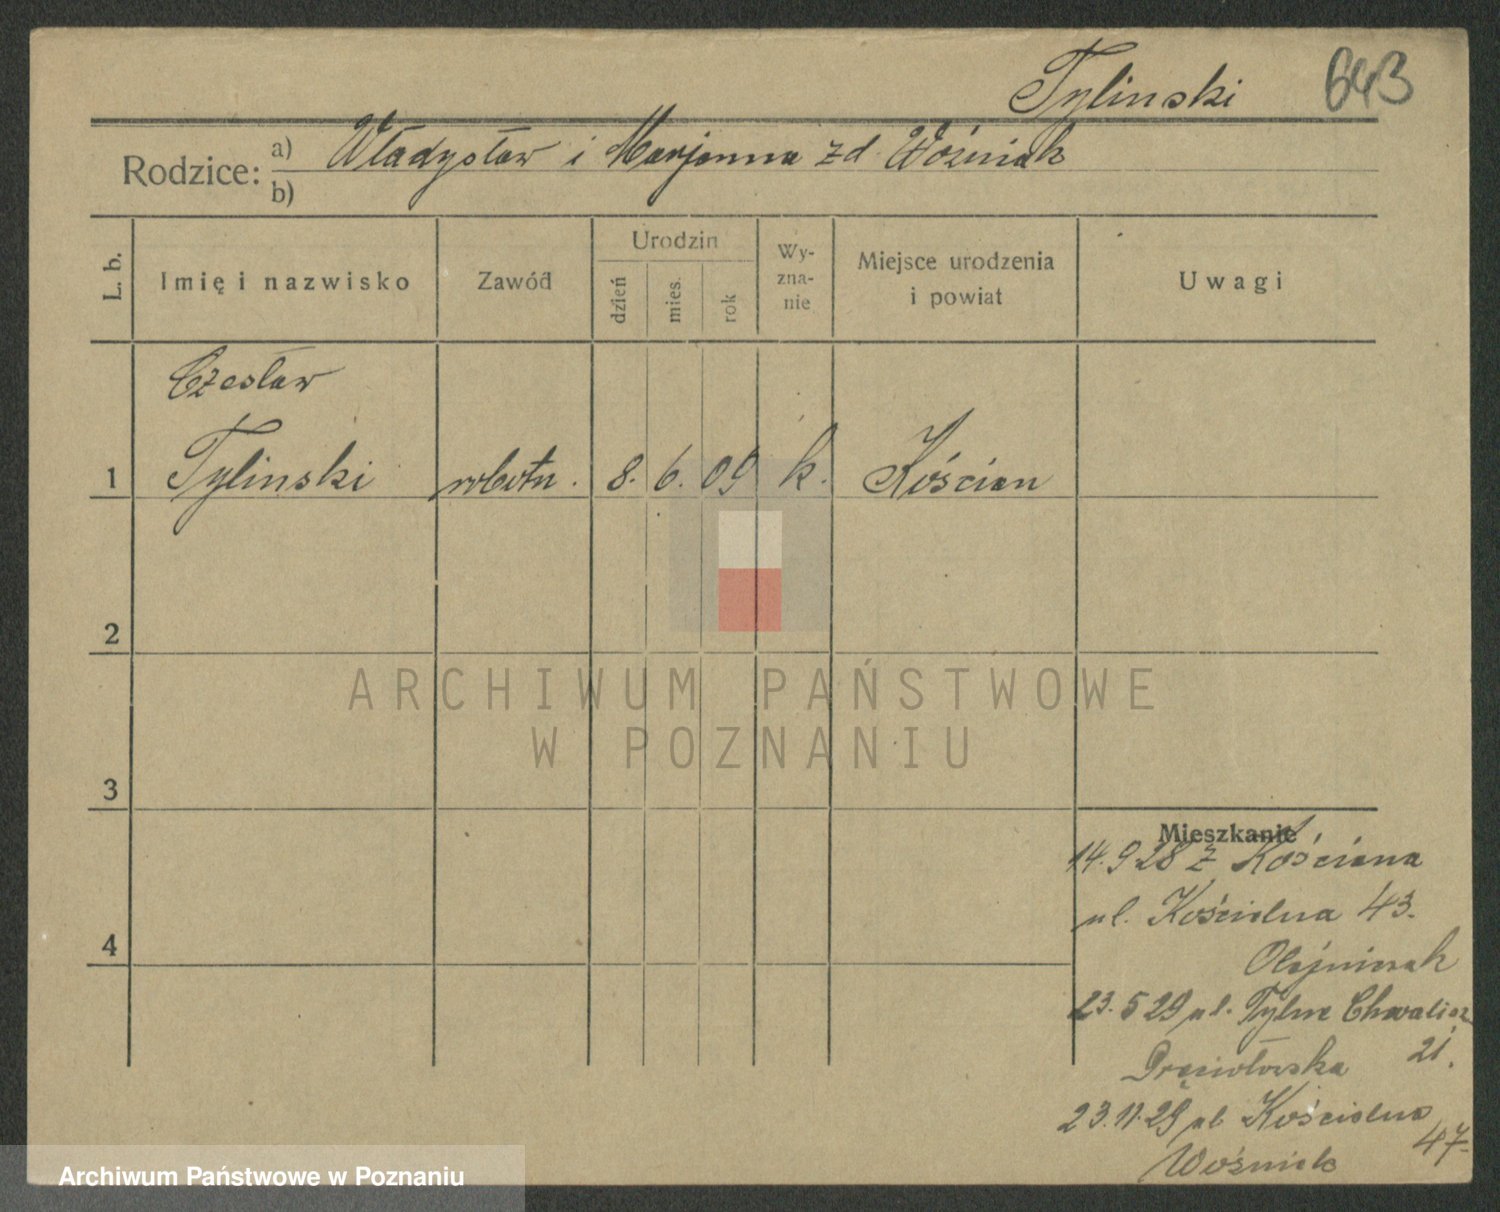 Tylinski 643
Rodzice: a) Władysław i Marjanna zd Woźniak
b)
L. b. Imię i nazwisko Zawód Urodzin dzień mies. rok Wy-zna-nie Miejsce urodzenia i powiat Uwagi
Czesław
1 Tylinski robotn. 8. 6. 09 k. Kościan
2
3
4
Mieszkanie
14.9.28 z Kościana
ul. Kościelna 43.
Olejniczak
23.5 29 ul. Tylne Chwalisz
21.
23.11.29 ul Kościelna
47.
Woźniak
ARCHIWUM PAŃSTWOWE
W POZNANIU
Archiwum Państwowe w Poznaniu